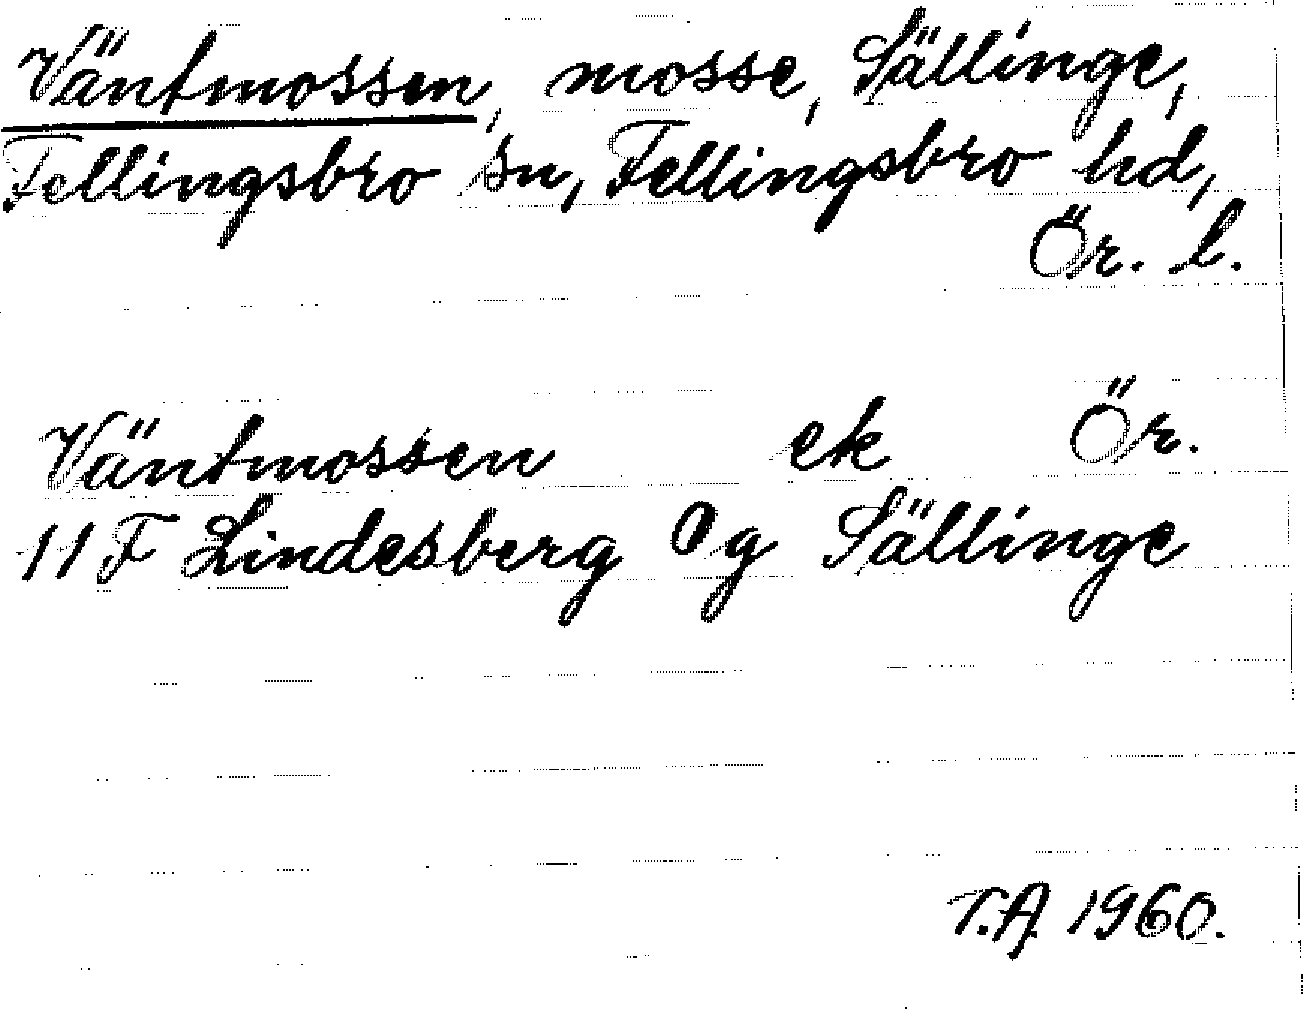 Väntmossen, mosse, Sällinge,
Fellingsbro sn, Fellingsbro hd,
Ör. l.
Väntmossen ek Ör.
11F Lindesberg 0g Sällinge
T.A. 1960.